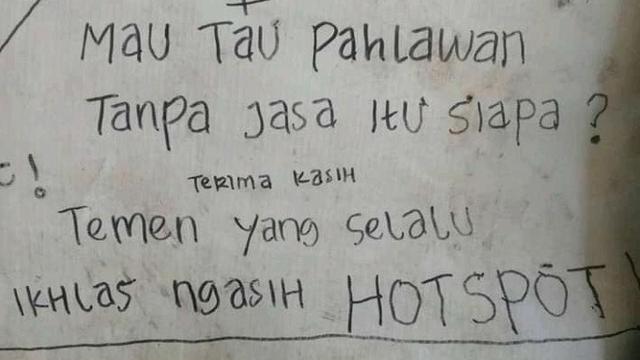 Mau Tau Pahlawan
Tanpa Jasa Itu Siapa ?
Terima Kasih
Temen yang selalu
Ikhlas ngasih HOTSPOT!